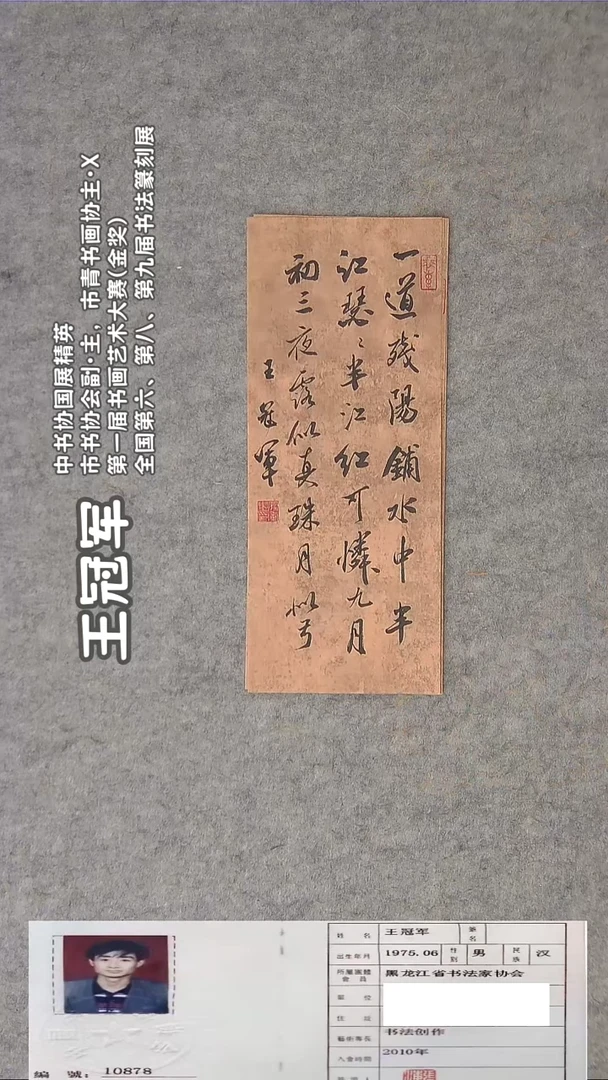 中书协国展精英
市书协会副·主，市青书画协主·X
第一届书画艺术大赛(金奖)
全国第六、第八、第九届书法篆刻展
王冠军
一道残陽鋪水中半
江瑟〻半江红可憐九月
初三夜露似真珠月似弓
王冠軍
編 號：10878
姓 名 王冠军 筆名
出生年月 1975.06 性别 男 民族 汉
所屬團體會員 黑龙江省书法家协会
住 址
藝術專長 书法创作
入會時間 2010年